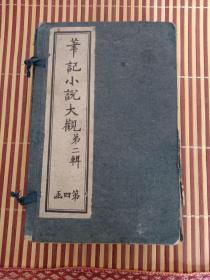 筆記小說大觀第二輯
第四函